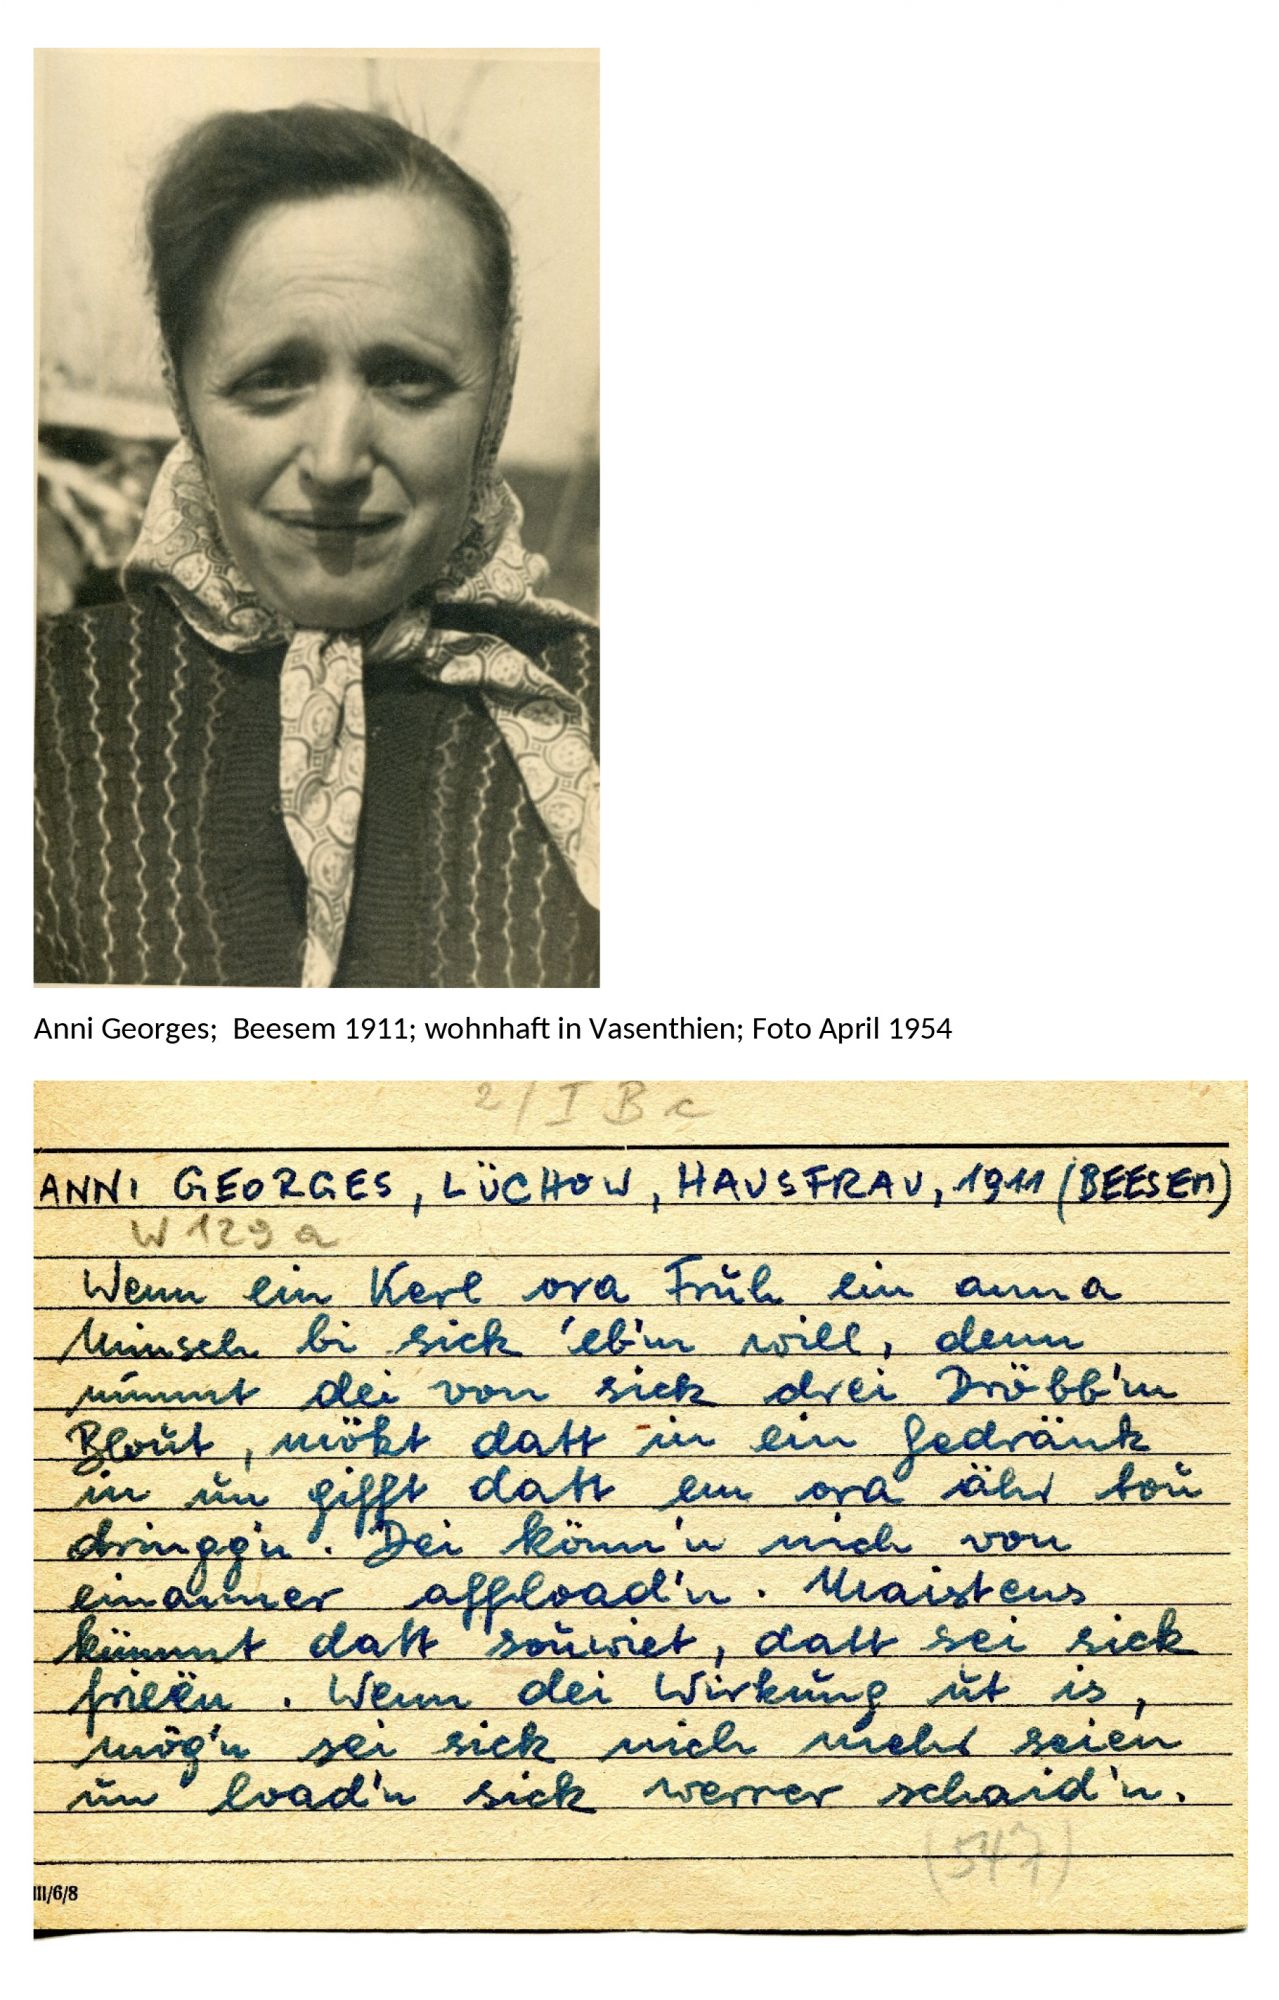 Anni Georges;  Beesem 1911; wohnhaft in Vasenthien; Foto April 1954
2/I B c
ANNI GEORGES, LÜCHOW, HAUSFRAU, 1911 (BEESEM)
W 129 a
Wenn ein Kerl ora Früh ein anna
Minsch bi sick 'eb'm will, denn
nimmt dei von sick drei Dröbb'm
Bloŭt, mökt datt in ein Gedränk
in ŭn gifft datt em ora ähr toŭ
dringg'n. Dei könn'n nich von
einanner affload'n. Maistens
kümmt datt soŭwiet, datt sei sick
frieën. Wenn dei Wirkŭng ŭt is,
mög'n sei sick nich mehr seien
ŭn load'n sick werrer schaid'n.
(547)
III/6/8